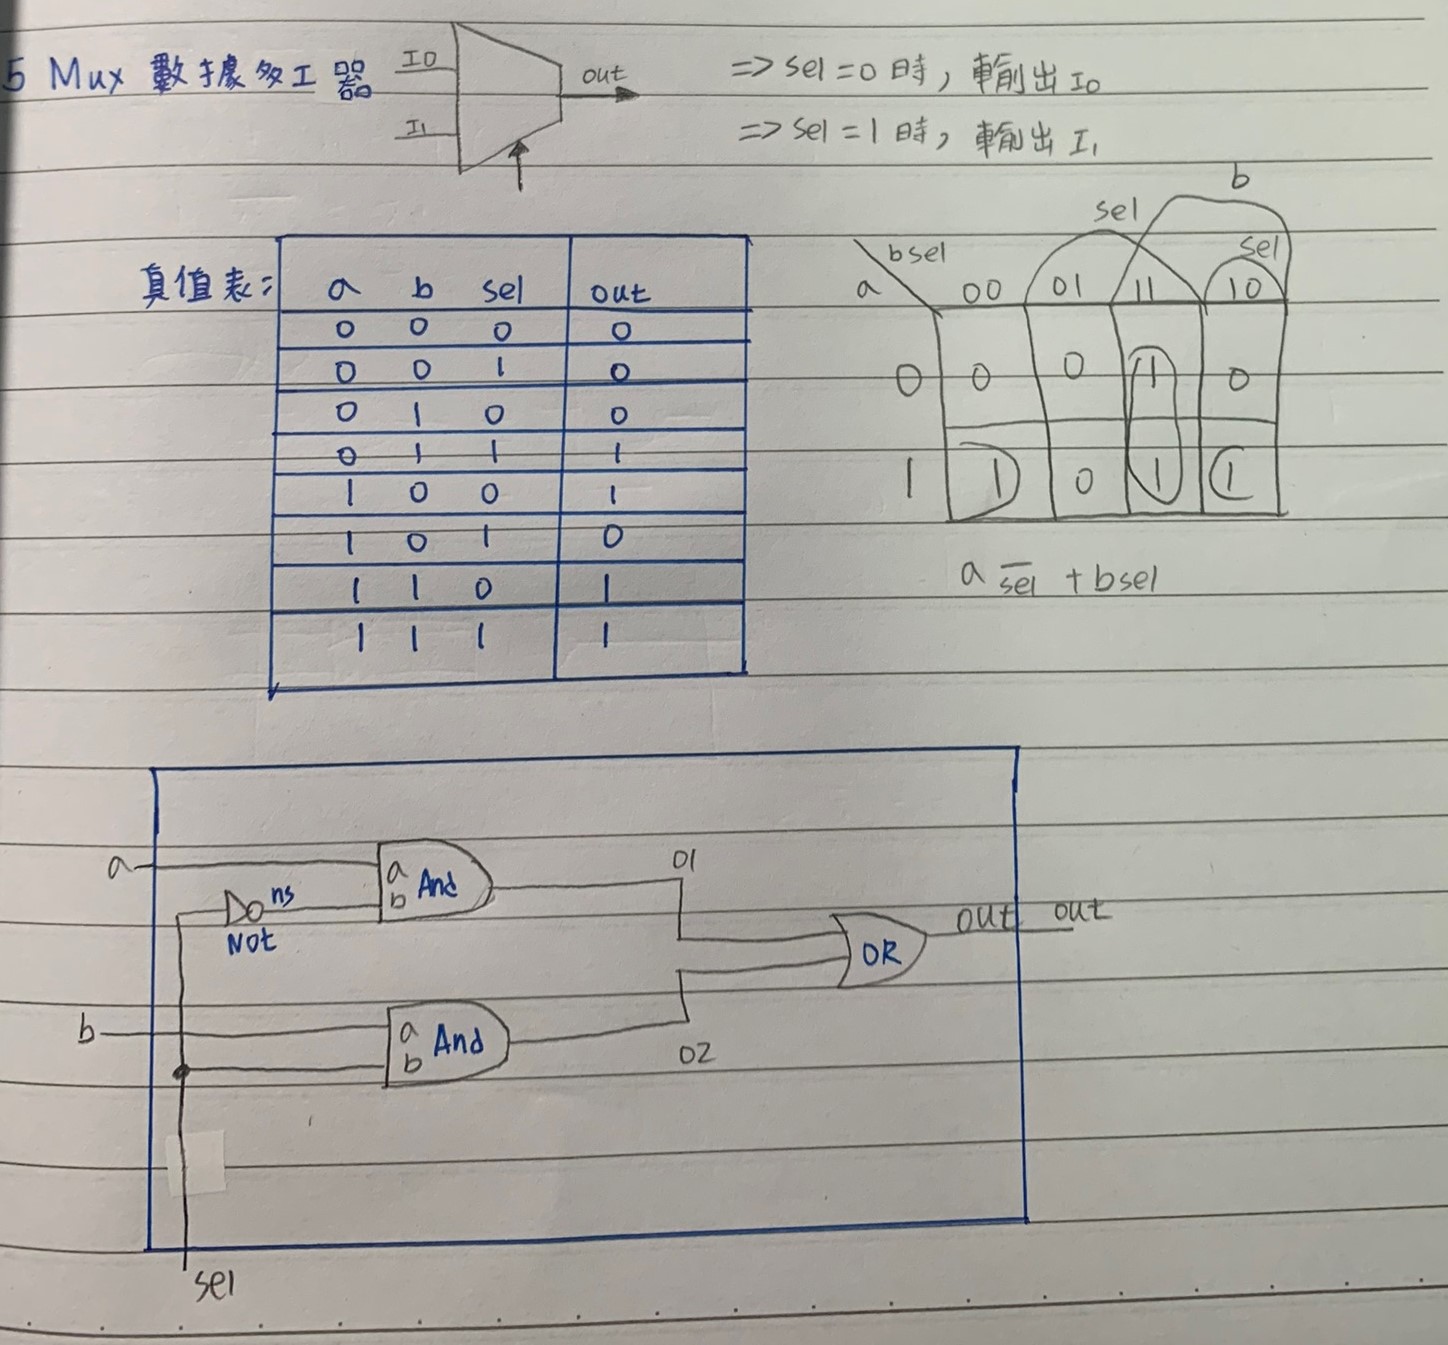 5 Mux 數據多工器
I0
I1
out
=> sel = 0 時, 輸出 I0
=> sel = 1 時, 輸出 I1
真值表:
a b sel out
0 0 0 0
0 0 1 0
0 1 0 0
0 1 1 1
1 0 0 1
1 0 1 0
1 1 0 1
1 1 1 1
b
sel
sel
bsel
a
00 01 11 10
0 0 0 1 0
1 1 0 1 1
a s̅e̅l̅ + bsel
a
a
b And
ns
Not
01
OR
out out
b
a
b And
02
sel